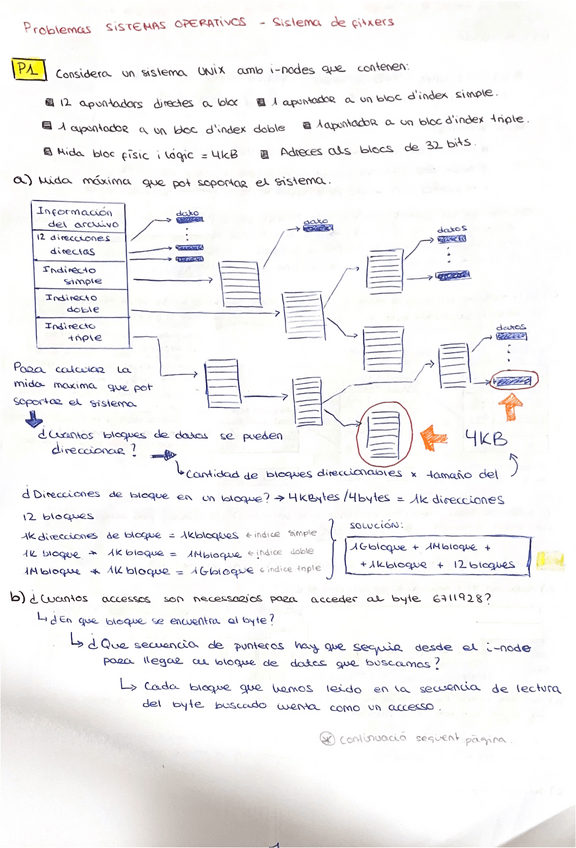 Problemas SISTEMAS OPERATIVOS - Sistema de fitxers
P1 Considera un sistema UNIX amb i-nodes que contenen:
12 apuntadors directes a bloc
1 apuntador a un bloc d'index simple.
1 apuntador a un bloc d'index doble
1 apuntador a un bloc d'index triple.
Mida bloc físic i lògic = 4KB
Adreces als blocs de 32 bits.
a) Mida máxima que pot soportar el sistema.
Información
del archivo
12 direcciones
directas
Indirecto
simple
Indirecto
doble
Indirecto
triple
dato
dato
datos
datos
Para calcular la
mida maxima que pot
soportar el sistema
¿Cuantos bloques de datos se pueden
direccionar?
4KB
Cantidad de bloques direccionables * tamaño del
¿Direcciones de bloque en un bloque? → 4KBytes/4bytes = 1K direcciones
12 bloques
1K direcciones de bloque = 1Kbloques ← indice simple
1K bloque * 1K bloque = 1Mbloque ← indice doble
1Mbloque * 1K bloque = 1Gbloque ← indice triple
SOLUCIÓN:
1Gbloque + 1Mbloque +
+ 1Kbloque + 12 bloques
b) ¿Cuantos accessos son necessarios para acceder al byte 6711928?
¿En que bloque se encuentra el byte?
¿Que secuencia de punteros hay que seguir desde el i-node
para llegar al bloque de datos que buscamos?
Cada bloque que hemos leido en la secuencia de lectura
del byte buscado cuenta como un accesso.
* continuació següent pàgina.
1